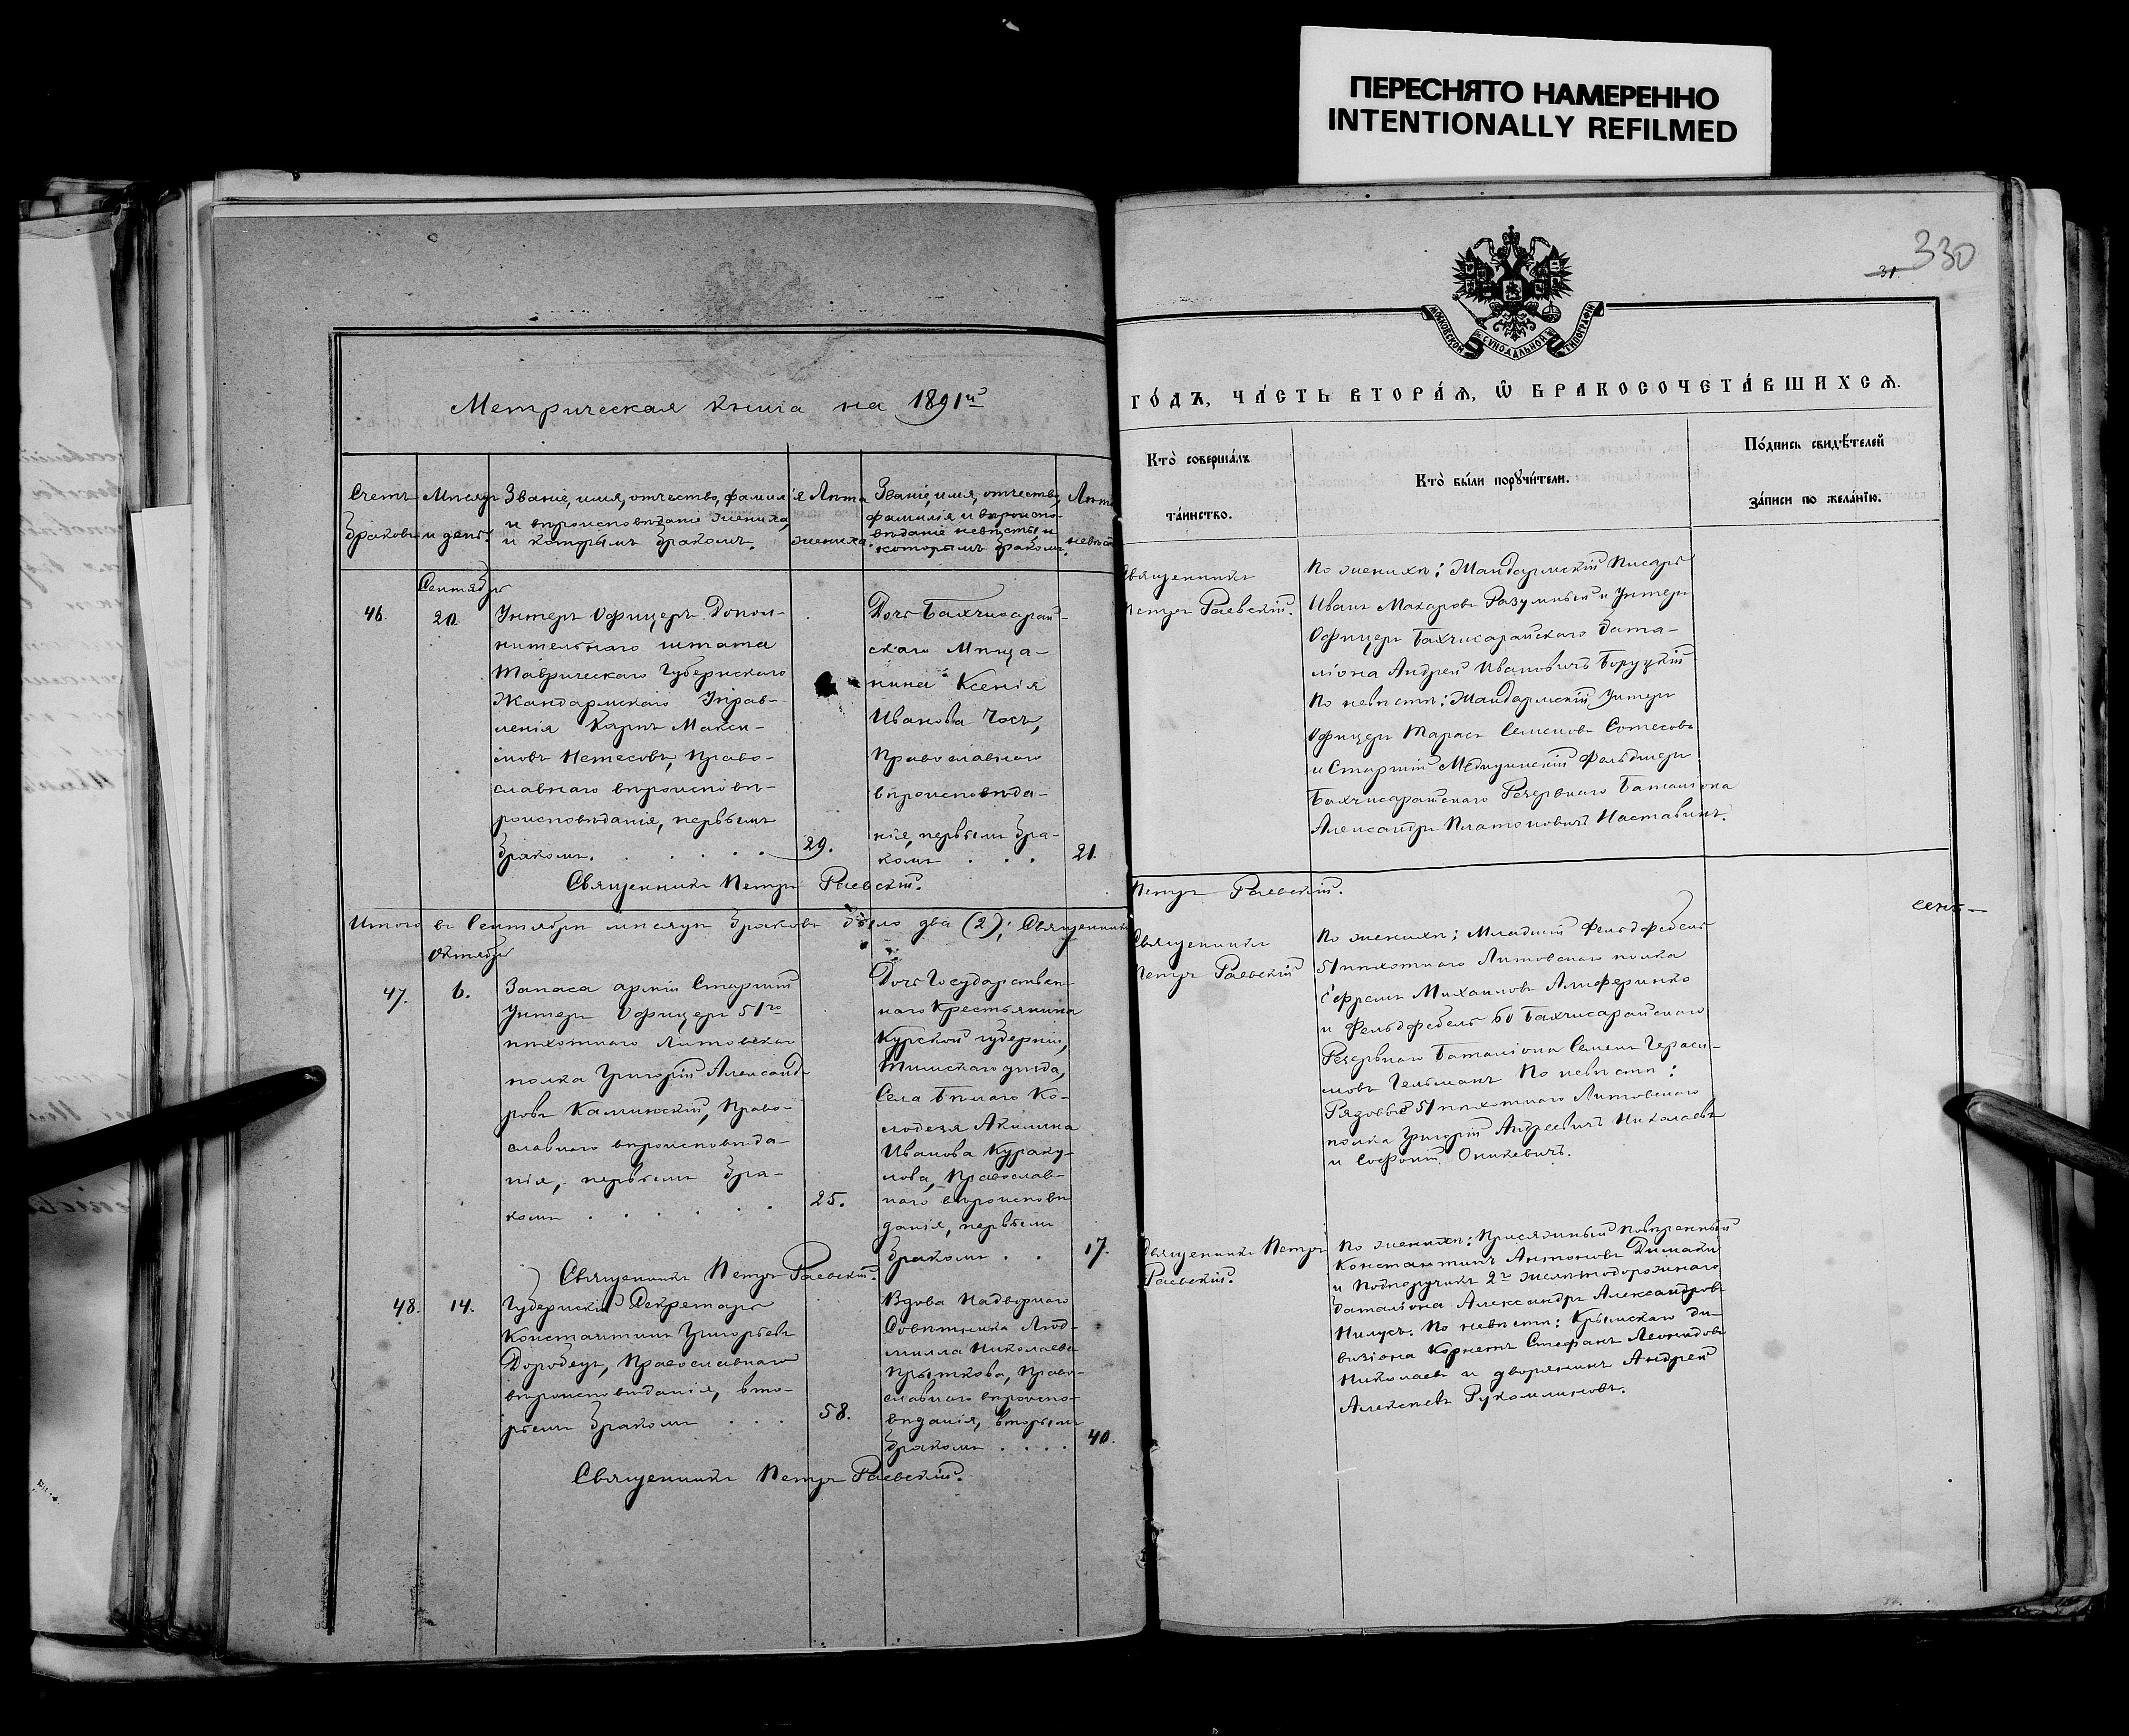 ПЕРЕСНЯТО НАМЕРЕННО
INTENTIONALLY REFILMED
330
31.
МОСКОВСКОЙ СѴНОДАЛЬНОЙ ТИПОГРАФІИ
Метрическая книга на 1891й
ГО́ДЪ, ЧА́СТЬ ВТОРА́Ѧ, Ѽ БРАКОСОЧЕТА́ВШИХСѦ.
Счетъ
браковъ
Мѣсяцъ
и день.
Званіе, имя, отчество, фамилія
и вѣроисповѣданіе жениха,
и которымъ бракомъ.
Лѣта
жениха.
Званіе, имя, отчество,
фамилія и вѣроиспо-
вѣданіе невѣсты, и
которымъ бракомъ.
Лѣта
невѣст
Кто̀ соверша́лъ
та́инство.
Кто̀ бы́ли порꙋчи́тели.
По́дпись свидѣ́телей
за́писи по жела́нїю.
Сентябрь
46.
20.
Унтеръ Офицеръ Допол-
нительнаго штата
Таврическаго Губернскаго
Жандармскаго Управ-
ленія Карпъ Макси-
мовъ Нетесовъ, Право-
славнаго вѣроисповѣ-
роисповѣданія, первымъ
бракомъ.
29.
Дочь Бахчисарай-
скаго Мѣща-
нина Ксенія
Иванова Чосъ,
Православнаго
вѣроисповѣда-
нія, первымъ бра-
комъ
21.
Священникъ
Петръ Раевскій.
По женихѣ: Жандармскій Писарь
Иванъ Макаровъ Разумный и Унтеръ
Офицеръ Бахчисарайскаго Бата-
ліона Андрей Ивановичъ Боруцкій
По невѣстѣ: Жандармскій Унтеръ
Офицеръ Тарасъ Семеновъ Сотесовъ
и Старшій Медицинскій Фельдшеръ
Бахчисарайскаго Резервнаго Баталіона
Александръ Платоновичъ Наставинъ.
Священникъ Петръ Раевскій.
Итого въ Сентябрѣ мѣсяцѣ браковъ было два (2); Священникъ
Петръ Раевскій.
Октябрь
47.
6.
Запаса арміи Старшій
Унтеръ Офицеръ 51го
пѣхотнаго Литовскаго
полка Григорій Александ
ровъ Калинскій, Право-
славнаго вѣроисповѣда-
нія, первымъ бра-
комъ
25.
Дочь Государствен-
наго Крестьянина
Курской губерніи,
Тимскаго уѣзда,
Села Бѣлаго Ко-
лодезя Акилина
Иванова Кураку-
лова, Православ-
наго вѣроисповѣ
данія, первымъ
бракомъ
17.
Священникъ
Петръ Раевскій
По женихѣ: Младшій Фельдфебель
51 пѣхотнаго Литовскаго полка
Ефремъ Михаиловъ Алиферинко
и Фельдфебель 60 Бахчисарайскаго
Резервнаго Баталіона Семенъ Гераси-
мовъ Гельманъ По невѣстѣ:
Рядовые 51 пѣхотнаго Литовскаго
полка Григорій Андреевичъ Николаевъ
и Софоній Оникевичъ.
Священникъ Петръ Раевскій.
48.
14.
Губернскій Секретарь
Константинъ Григорьевъ
Доробецъ, Православнаго
вѣроисповѣданія, вто-
рымъ бракомъ
58.
Вдова Надворнаго
Совѣтника Люд-
милла Николаева
Прыткова, Право-
славнаго вѣроиспо-
вѣданія, вторымъ
бракомъ
40.
Священникъ Петръ
Раевскій.
По женихѣ: Присяжный повѣренный
Константинъ Антоновъ Димаки
и Подпоручикъ 2го желѣзнодорожнаго
баталіона Александръ Александровъ
Нилусъ. По невѣстѣ: Крымскаго ди-
визіона Корнетъ Стефанъ Леонидовъ
Николаевъ и дворянинъ Андрей
Алексѣевъ Рукомлиновъ.
Священникъ Петръ Раевскій.